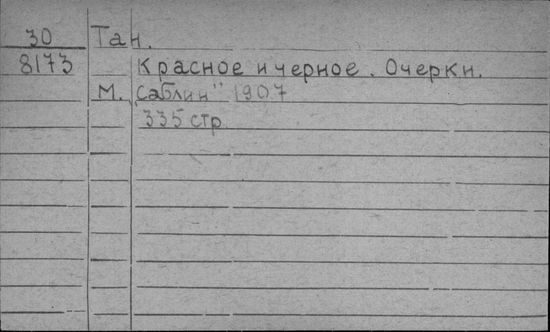 30 Тан.
8173 Красное и черное. Очерки.
М. Саблин" 1907
335 стр